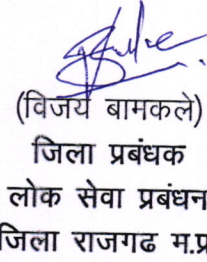 (विजय बामकले)
जिला प्रबंधक
लोक सेवा प्रबंधन
जिला राजगढ म.प्र